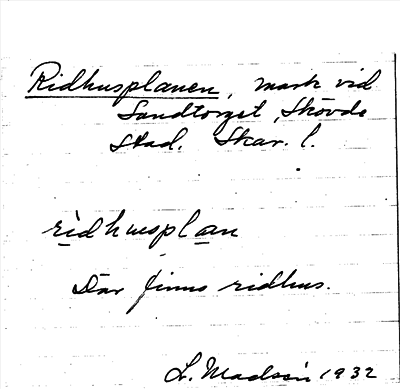 Ridhusplanen, mark vid
Sandtorget, Skövde
stad. Skar. l.
ridhusplan
Där finns ridhus.
L. Madsén 1932